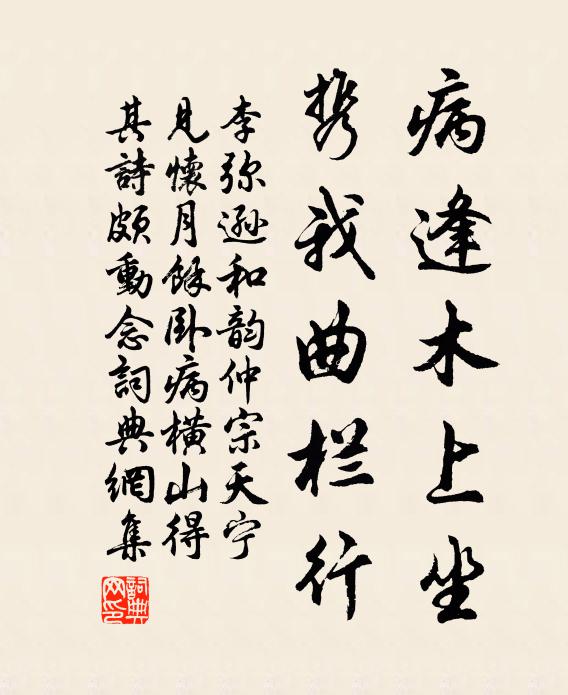 病逢木上坐
携我曲栏行
李弥逊和韵仲宗天宁
见懷月餘卧病横山得
其詩頗動念詞典網集
詞典网印